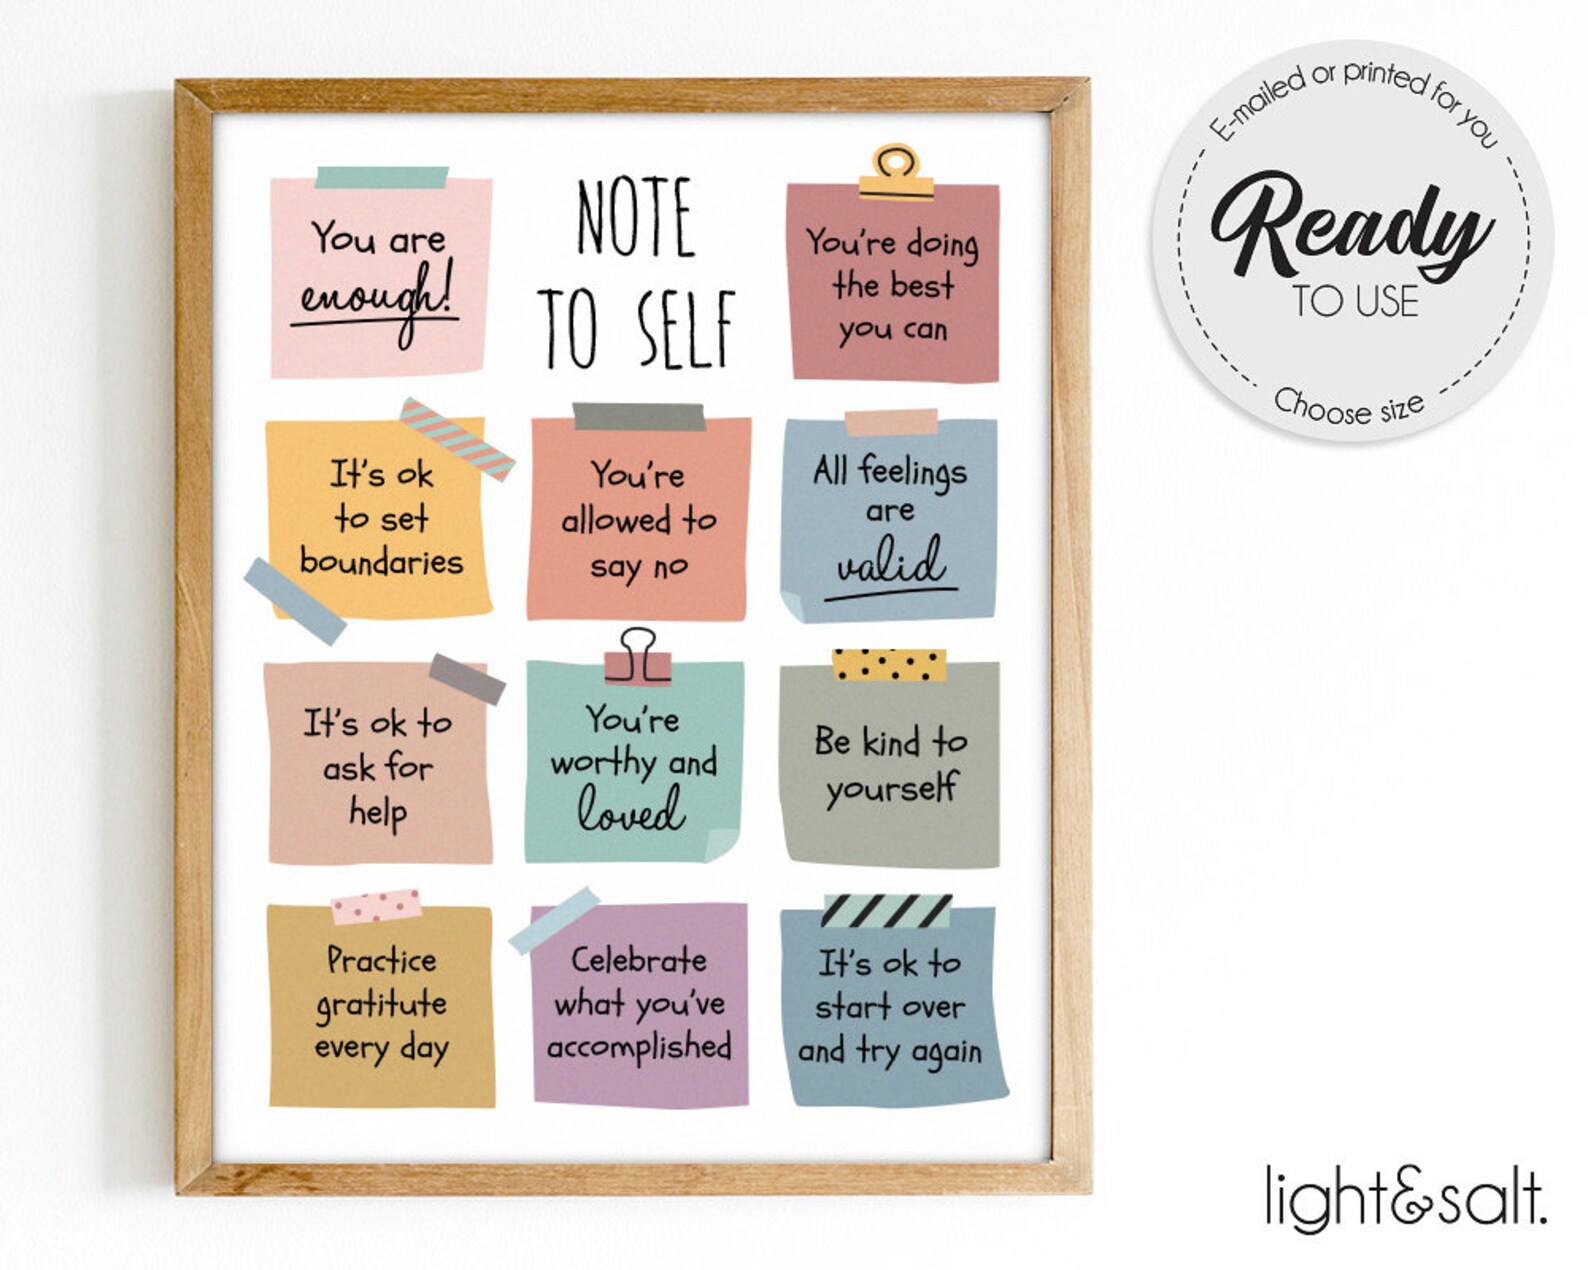 NOTE
TO SELF
You are
enough!
You're doing
the best
you can
It's ok
to set
boundaries
You're
allowed to
say no
All feelings
are
valid
It's ok to
ask for
help
You're
worthy and
loved
Be kind to
yourself
Practice
gratitute
every day
Celebrate
what you've
accomplished
It's ok to
start over
and try again
E-mailed or printed for you
Ready
TO USE
Choose size
light&salt.